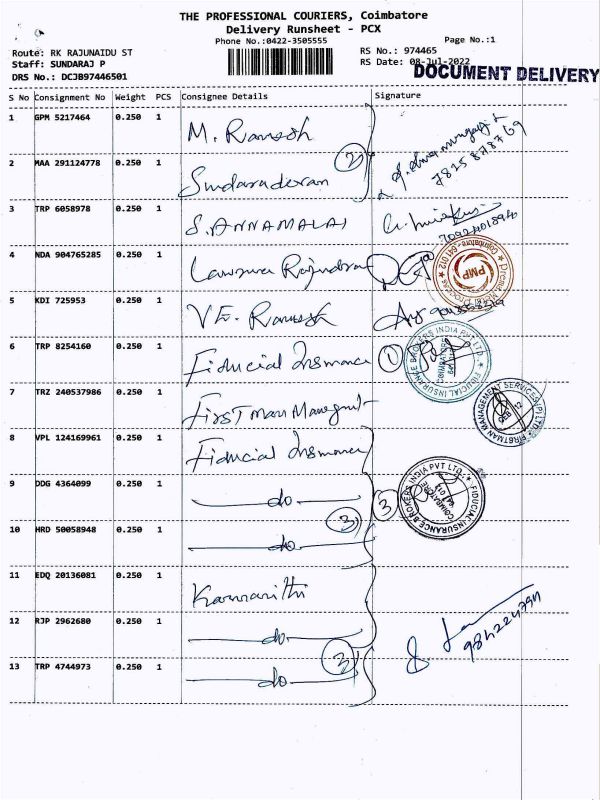 THE PROFESSIONAL COURIERS, Coimbatore
Delivery Runsheet - PCX
Phone No.:0422-3505555
Page No.:1
Route: RK RAJUNAIDU ST
RS No.: 974465
Staff: SUNDARAJ P
RS Date: 08-Jul-2022
DOCUMENT DELIVERY
DRS No.: DCJB97446501
S No Consignment No Weight PCS Consignee Details Signature
1 GPM 5217464 0.250 1 M. Ramesh
2 MAA 291124778 0.250 1 Sundaradevan 2
7825878769
3 TRP 6058978 0.250 1 S. ANNAMALAI
4 NDA 904765285 0.250 1 Rajendran
PMP
Coimbatore - 641 012
5 KDI 725953 0.250 1 Ramesh
6 TRP 8254160 0.250 1 Fiducial Insurance 1
FIDUCIAL INSURANCE BROKERS INDIA PVT LTD.,
COIMBATORE
7 TRZ 240537986 0.250 1 First Man Managmnt
FIRSTMAN MANAGEMENT SERVICES(P) LTD.
8 VPL 124169961 0.250 1 Fiducial Insurance
9 DDG 4364099 0.250 1 do 3
FIDUCIAL INSURANCE BROKERS INDIA PVT LTD.,
COIMBATORE
641 012
10 HRD 50058948 0.250 1 do 3
11 EDQ 20136081 0.250 1
12 RJP 2962680 0.250 1 do
13 TRP 4744973 0.250 1 do 3